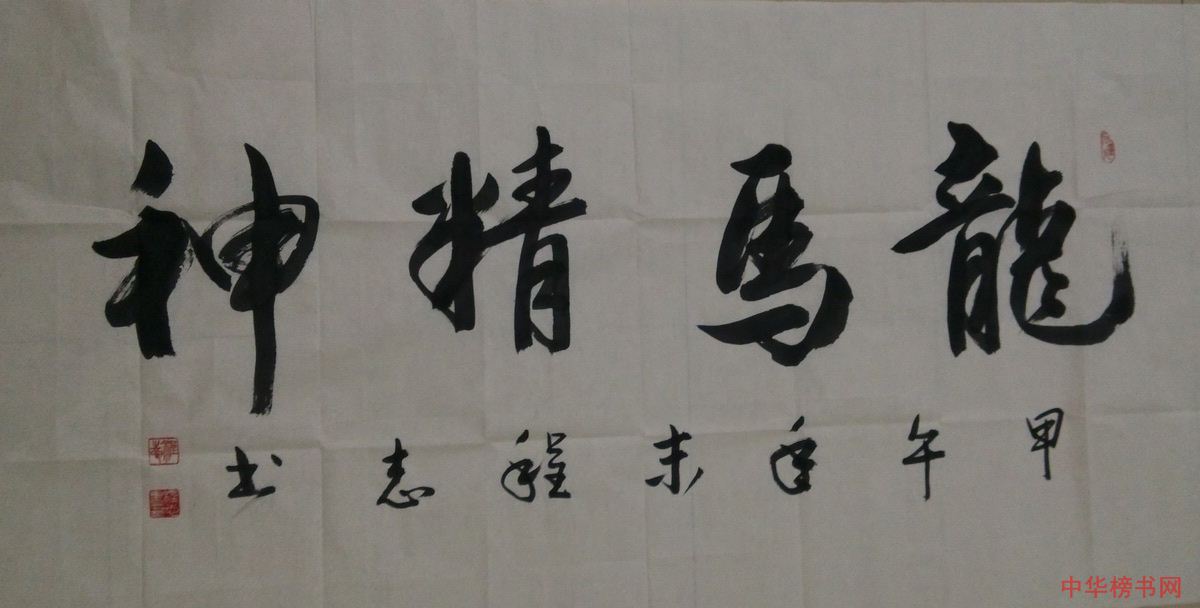 龍馬精神
甲午年末程志书
中华榜书网